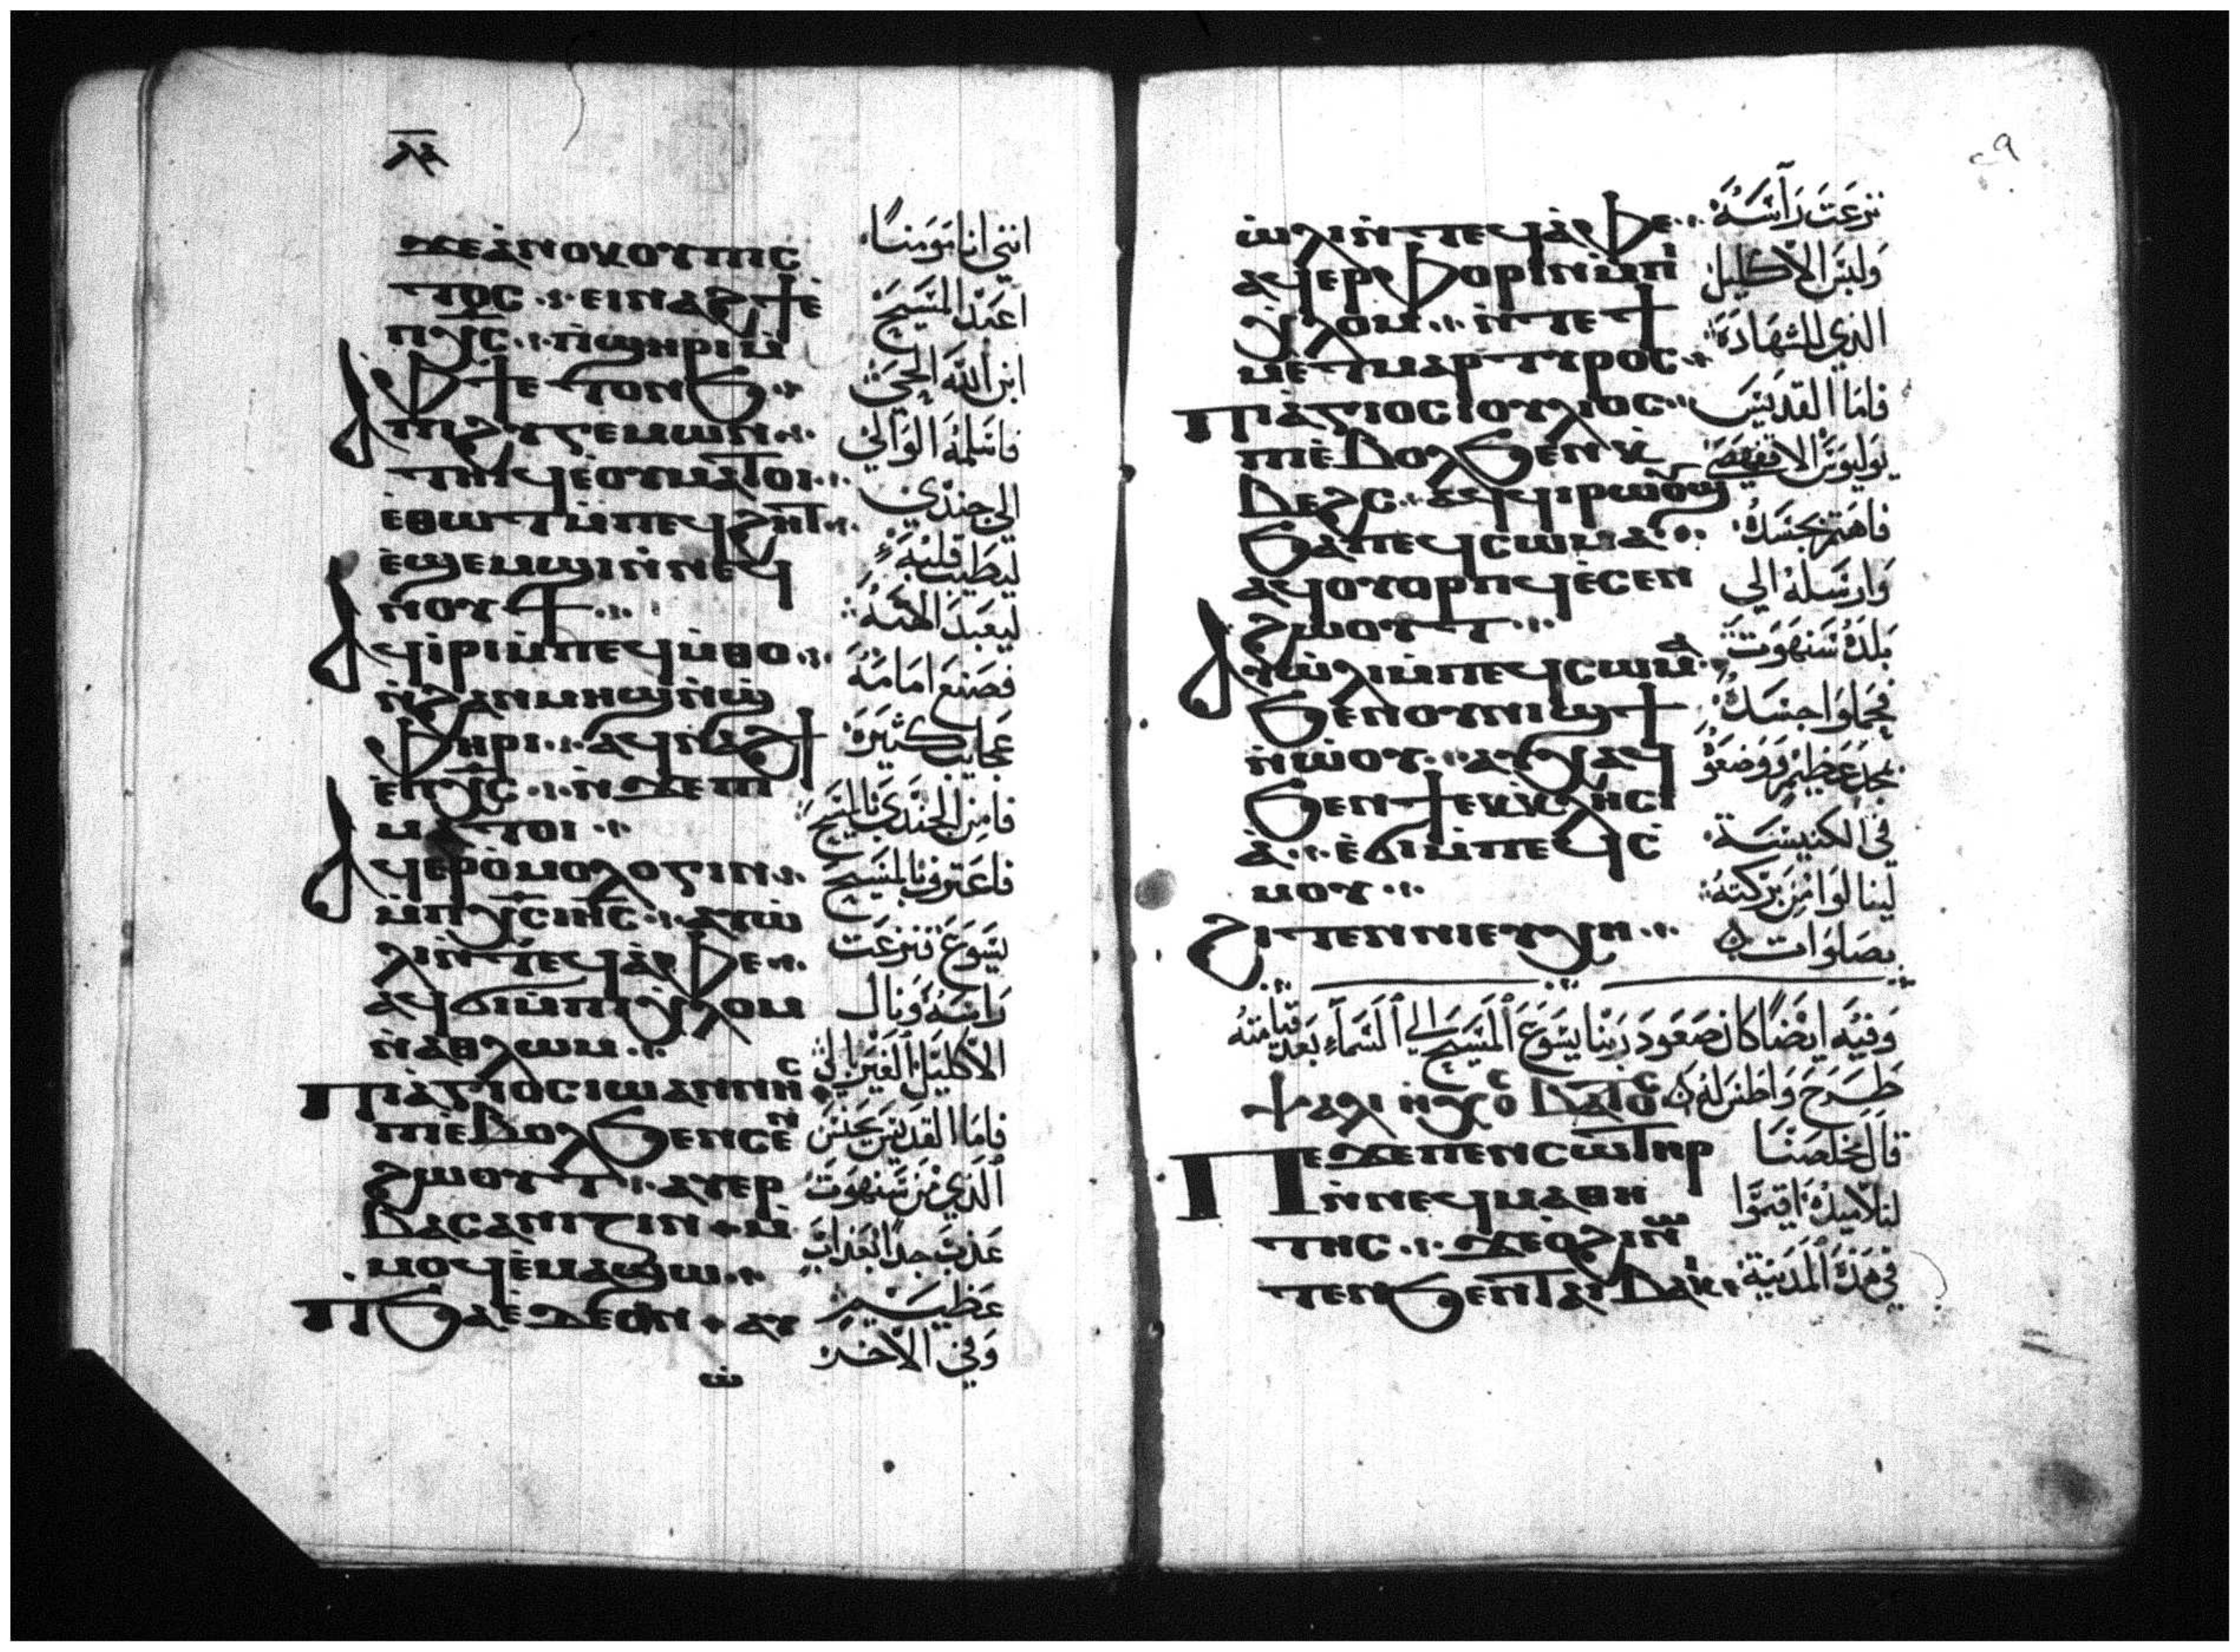 ϫⲉⲁ̀ⲛⲟⲕⲟⲩⲡⲓⲥ
ⲧⲟⲥ ⲉⲓⲛⲁϩϯⲉ̀
ⲡⲭ̅ⲥ̅ ⲡ̀ϣⲏⲣⲓⲙ̀
ⲫϯⲉⲧⲟⲛϧ
ⲁⲡⲓϩⲩⲅⲉⲙⲱⲛ
ⲧⲏⲓϥⲉ̀ⲟⲩⲙⲁⲧⲟⲓ
ⲉ̀ⲑⲱⲧⲙ̀ⲡⲉϥϩⲏⲧ
ⲉ̀ϣⲉⲙϣⲓⲛ̀ⲛⲉϥ
ⲛⲟⲩϯ
ⲁϥⲓ̀ⲣⲓⲙ̀ⲡⲉϥⲙ̀ⲑⲟ
ⲛ̀ϩⲁⲛⲙⲏϣⲛ̀ϣ
ⲫⲏⲣⲓ ⲁϥⲛⲁϩϯ
ⲉ̀ⲡⲭ̅ⲥ̅ ⲛ̀ϫⲉⲡⲓ
ⲙⲁⲧⲟⲓ
ⲁϥⲉⲣⲟ̀ⲙⲟⲗⲟⲅⲓⲛ
ⲙ̀ⲡⲭ̅ⲥ̅ⲓⲏ̅ⲥ̅ ⲁⲩⲱ̀
ⲗⲓⲛ̀ⲧⲉϥⲁ̀ⲫⲉ
ⲁϥϭⲓⲙ̀ⲡⲓⲭ̀ⲗⲟⲙ
ⲛ̀ⲁⲑⲗⲱⲙ
ⲡⲓⲁ̀ⲅⲓⲟⲥⲓⲱⲁⲛⲛⲏⲥ
ⲡⲓⲉ̀ⲃⲟⲗϧⲉⲛⲥⲉⲛ
ϩⲱⲟⲩⲧ ⲁⲩⲉⲣ
ⲃⲁⲥⲁⲛⲓⲍⲓⲛ ⲙ̀
ⲙⲟϥⲉ̀ⲙⲁϣⲱ
ⲡϧⲁⲉ̀ⲇⲉⲟⲛ ⲁⲩ
ⲱ̀
انني انا مومنا
اعبد المسيح
ابن الله الحي
فاسلمه الوالي
الي جندي
ليطيب قلبه
ليعبد الهته
فصنع امامه
عجايب كثيره
فامن الجندي بالمسيح
فاعترف بالمسيح
يسوع فنزعت
راسه ونال
الاكليل الغير
فاما القديس يحنس
الذي من سنهوت
عذب جدا بعذاب
عظيم
وفي الاخر
٢٩
ⲱ̀ⲗⲓⲛ̀ⲧⲉϥⲁ̀ⲫⲉ
ⲁϥⲉⲣⲫⲟⲣⲓⲛⲙ̀ⲡⲓ
ⲭ̀ⲗⲟⲙ ⲛ̀ⲧⲉϯ
ⲙⲉⲧⲙⲁⲣⲧⲩⲣⲟⲥ
ⲡⲓⲁ̀ⲅⲓⲟⲥⲓⲟⲩⲗⲓⲟⲥ
ⲡⲓⲉ̀ⲃⲟⲗϧⲉⲛⲭ̀
ⲃⲉϩⲥ ⲁϥϥⲓⲣⲱⲟⲩϣ
ϧⲁⲡⲉϥⲥⲱⲙⲁ
ⲁϥⲟⲩⲟⲣⲡϥⲉ̀ⲥⲉⲛ
ϩⲱⲟⲩⲧ
ⲁⲩⲱ̀ⲗⲓⲙ̀ⲡⲉϥⲥⲱⲙⲁ
ϧⲉⲛⲟⲩⲛⲓϣϯ
ⲛ̀ⲱ̀ⲟⲩ ⲁⲩⲭⲁϥ
ϧⲉⲛϯⲉⲕⲕⲗⲏⲥⲓ
ⲁ̀ ⲉ̀ϭⲓⲙ̀ⲡⲉϥⲥ̀
ⲙⲟⲩ
ϩⲓⲧⲉⲛⲛⲓⲉⲩⲭⲏ
نزعت راسه
ولبس الاكليل
الذي للشهادة
فاما القديس
يوليوس الاقفهصي
فاهتم بجسده
وارسله الي
بلدة سنهوت
فحملوا جسده
بمجد عظيم ووضعوه
في الكنيسة
لينالوا من بركته
بصلوات
وفيه ايضا كان صعود ربنا يسوع المسيح الي السماء بعد قيامته
طرح واطس له
ⲡⲉϫⲉⲡⲉⲛⲥⲱⲧⲏⲣ
ⲛ̀ⲛⲉϥⲙⲁⲑⲏ
ⲧⲏⲥ ϫⲉⲟ̀ϩⲓⲙⲱ
ⲧⲉⲛϧⲉⲛⲧⲁⲓⲃⲁⲕⲓ
قال مخلصنا
لتلاميذه اقيموا
في هذه المدينة